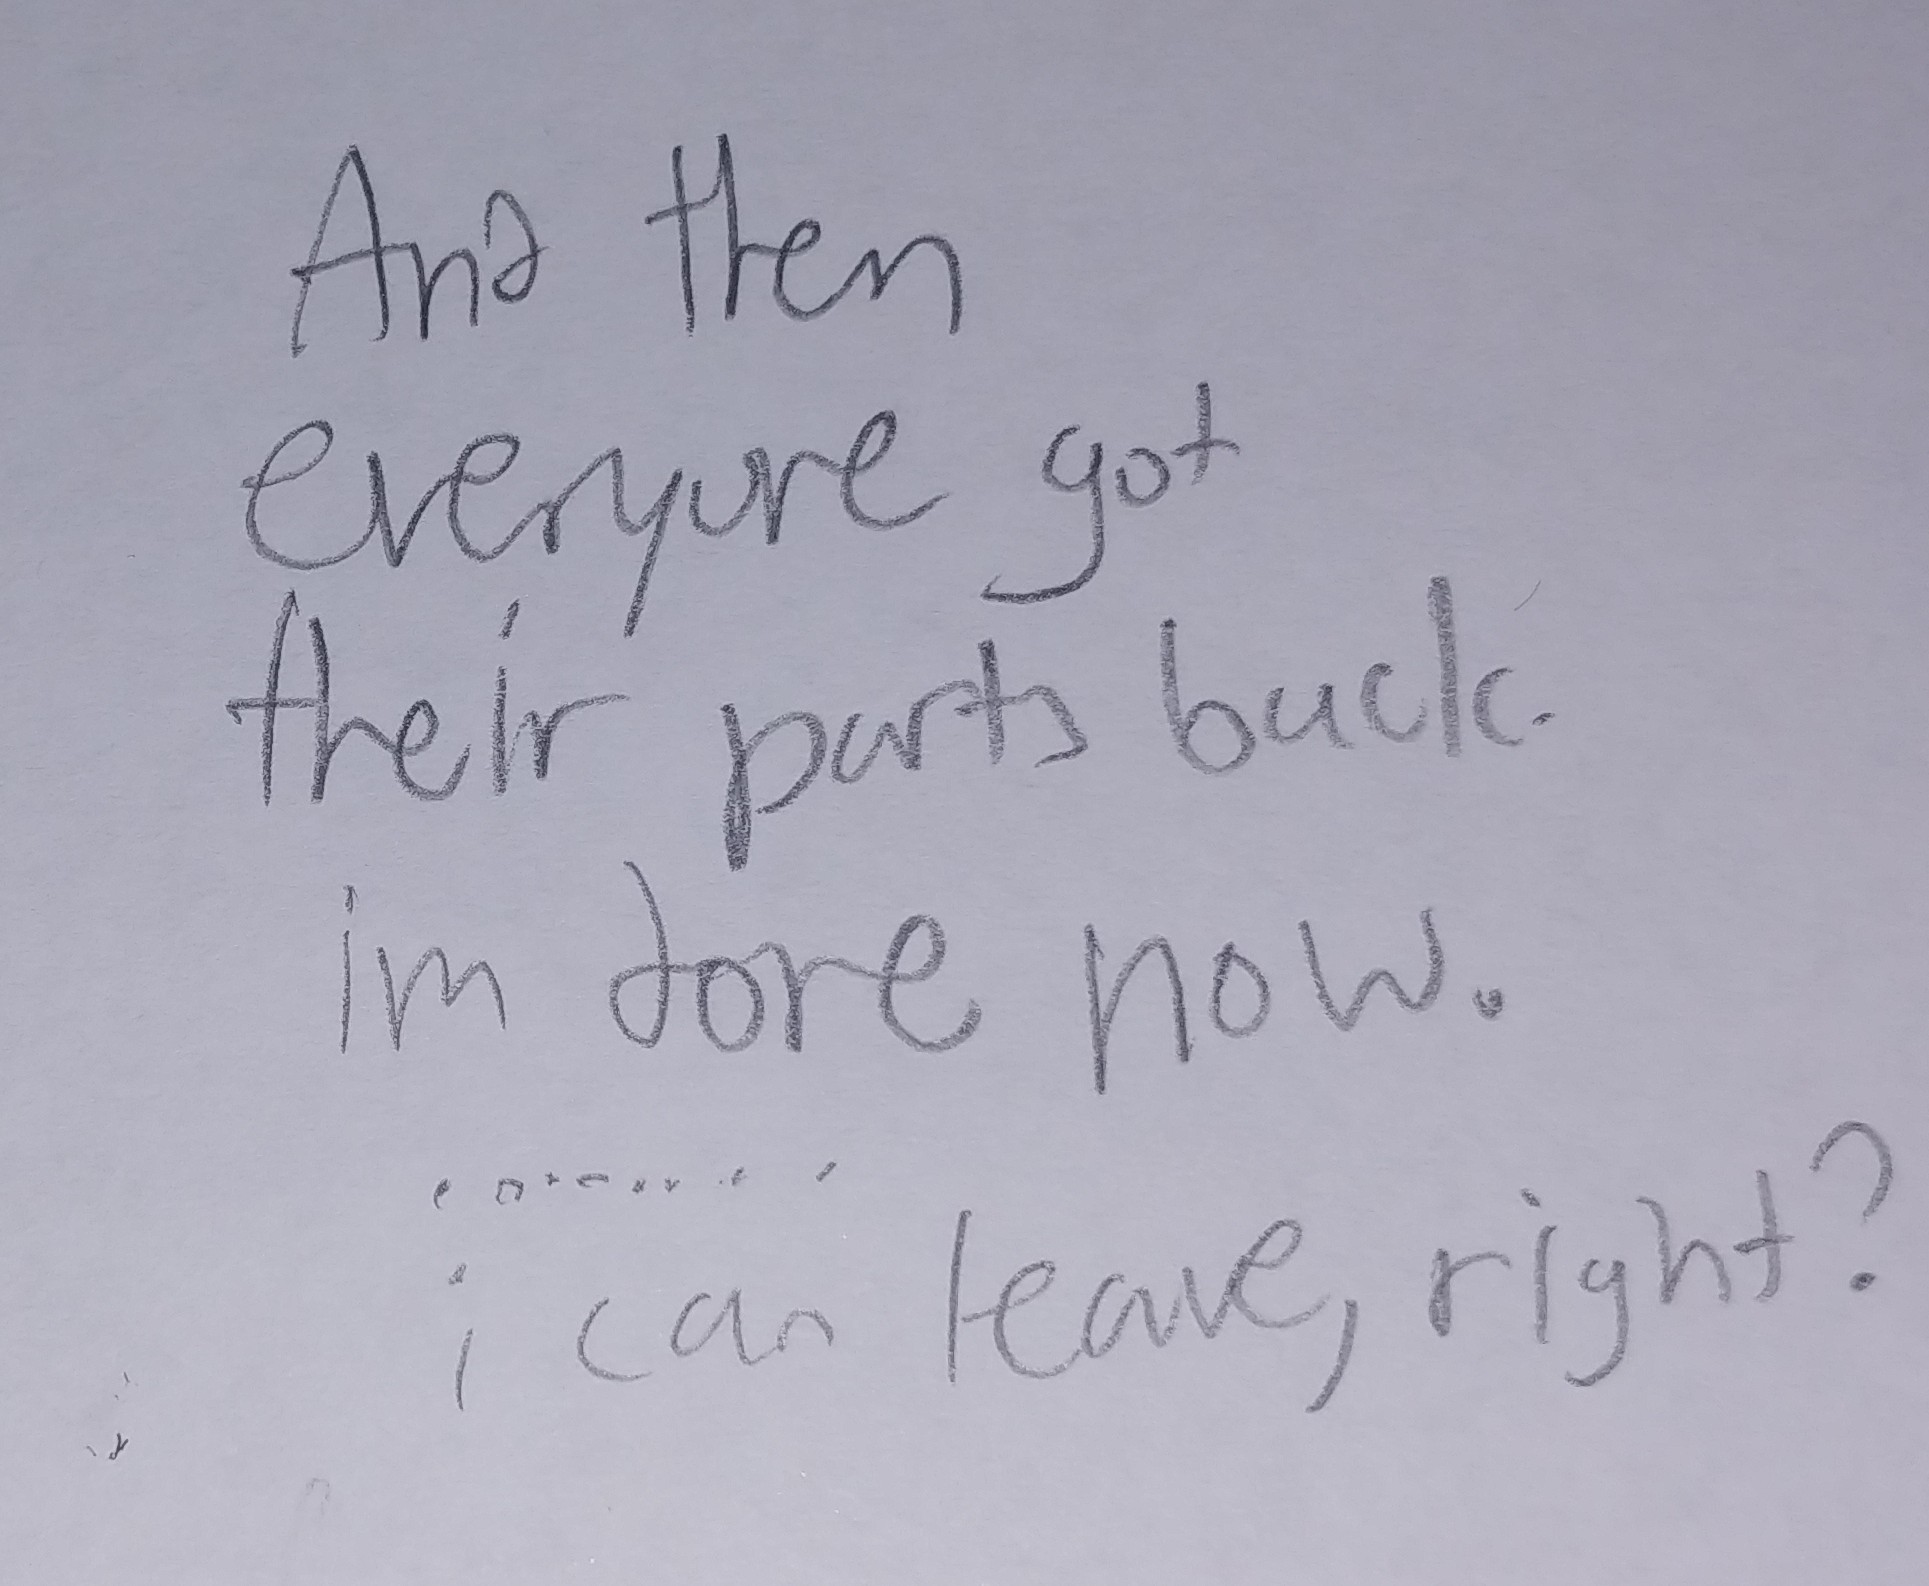 And then
everyone got
their parts back.
im done now.
........
i can leave, right?